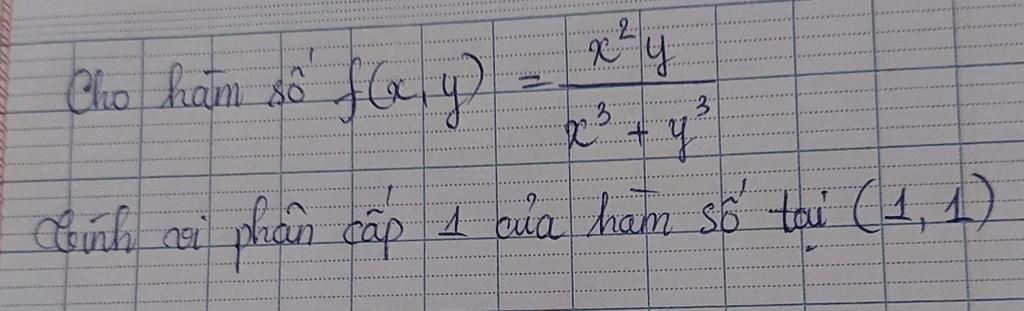 Cho hàm số f(x, y) = \frac{x^2 y}{x^3 + y^3}
Tính vi phân cấp 1 của hàm số tại (1, 1)